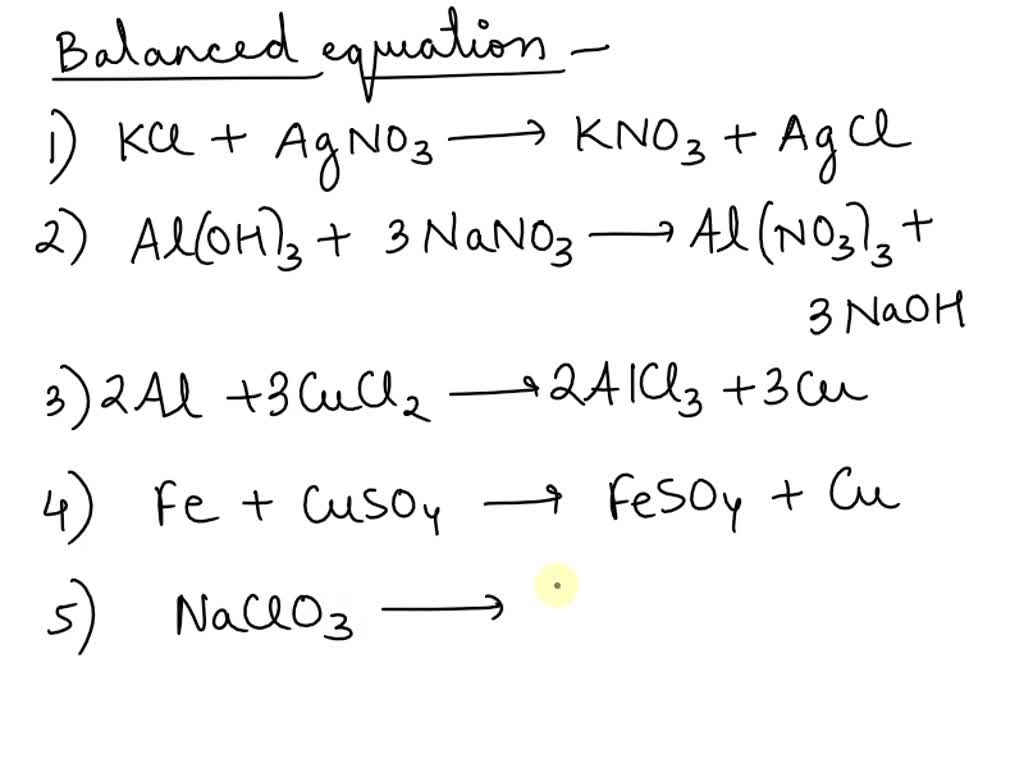 Balanced equation -
1) KCl + AgNO3 → KNO3 + AgCl
2) Al(OH)3 + 3 NaNO3 → Al(NO3)3 +
3 NaOH
3) 2Al + 3CuCl2 → 2AlCl3 + 3Cu
4) Fe + CuSO4 → FeSO4 + Cu
5) NaClO3 →